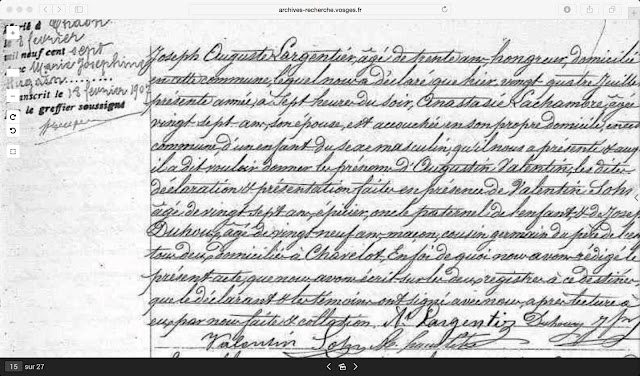 archives-recherche.vosges.fr
Marié à Thaon
le 8 février
mil neuf cent sept
avec Marie Joséphine
transcrit le 12 février 1907
le greffier soussigné
Joseph Auguste Largentier, âgé de trente ans, hongreur, domicilié
en cette commune, lequel nous a déclaré que hier, vingt quatre Juillet
présente année, à Sept heures du soir, Anastasie Lachambre, âgée
vingt sept ans, son épouse, est accouchée en son propre domicile, en cette
commune, d'un enfant du sexe masculin, qu'il nous a présenté & auq
il a dit vouloir donner les prénoms d'Augustin Valentin; les dites
déclaration & présentation faites en présence de Valentin Sohn
âgé de vingt sept ans, épicier, oncle paternel de l'enfant & de Jose
Duhoux, âgé de vingt neuf ans, maçon, cousin germain du père de l'en
tous deux domiciliés à Chavelot. En foi de quoi nous avons rédigé le
présent acte que nous avons écrit sur les deux registres à ce destinés
que le déclarant & les témoins ont signé avec nous, après lecture à
eux par nous faite & collation. Ate Largentier Duhoux J
Valentin Sohn
15 sur 27